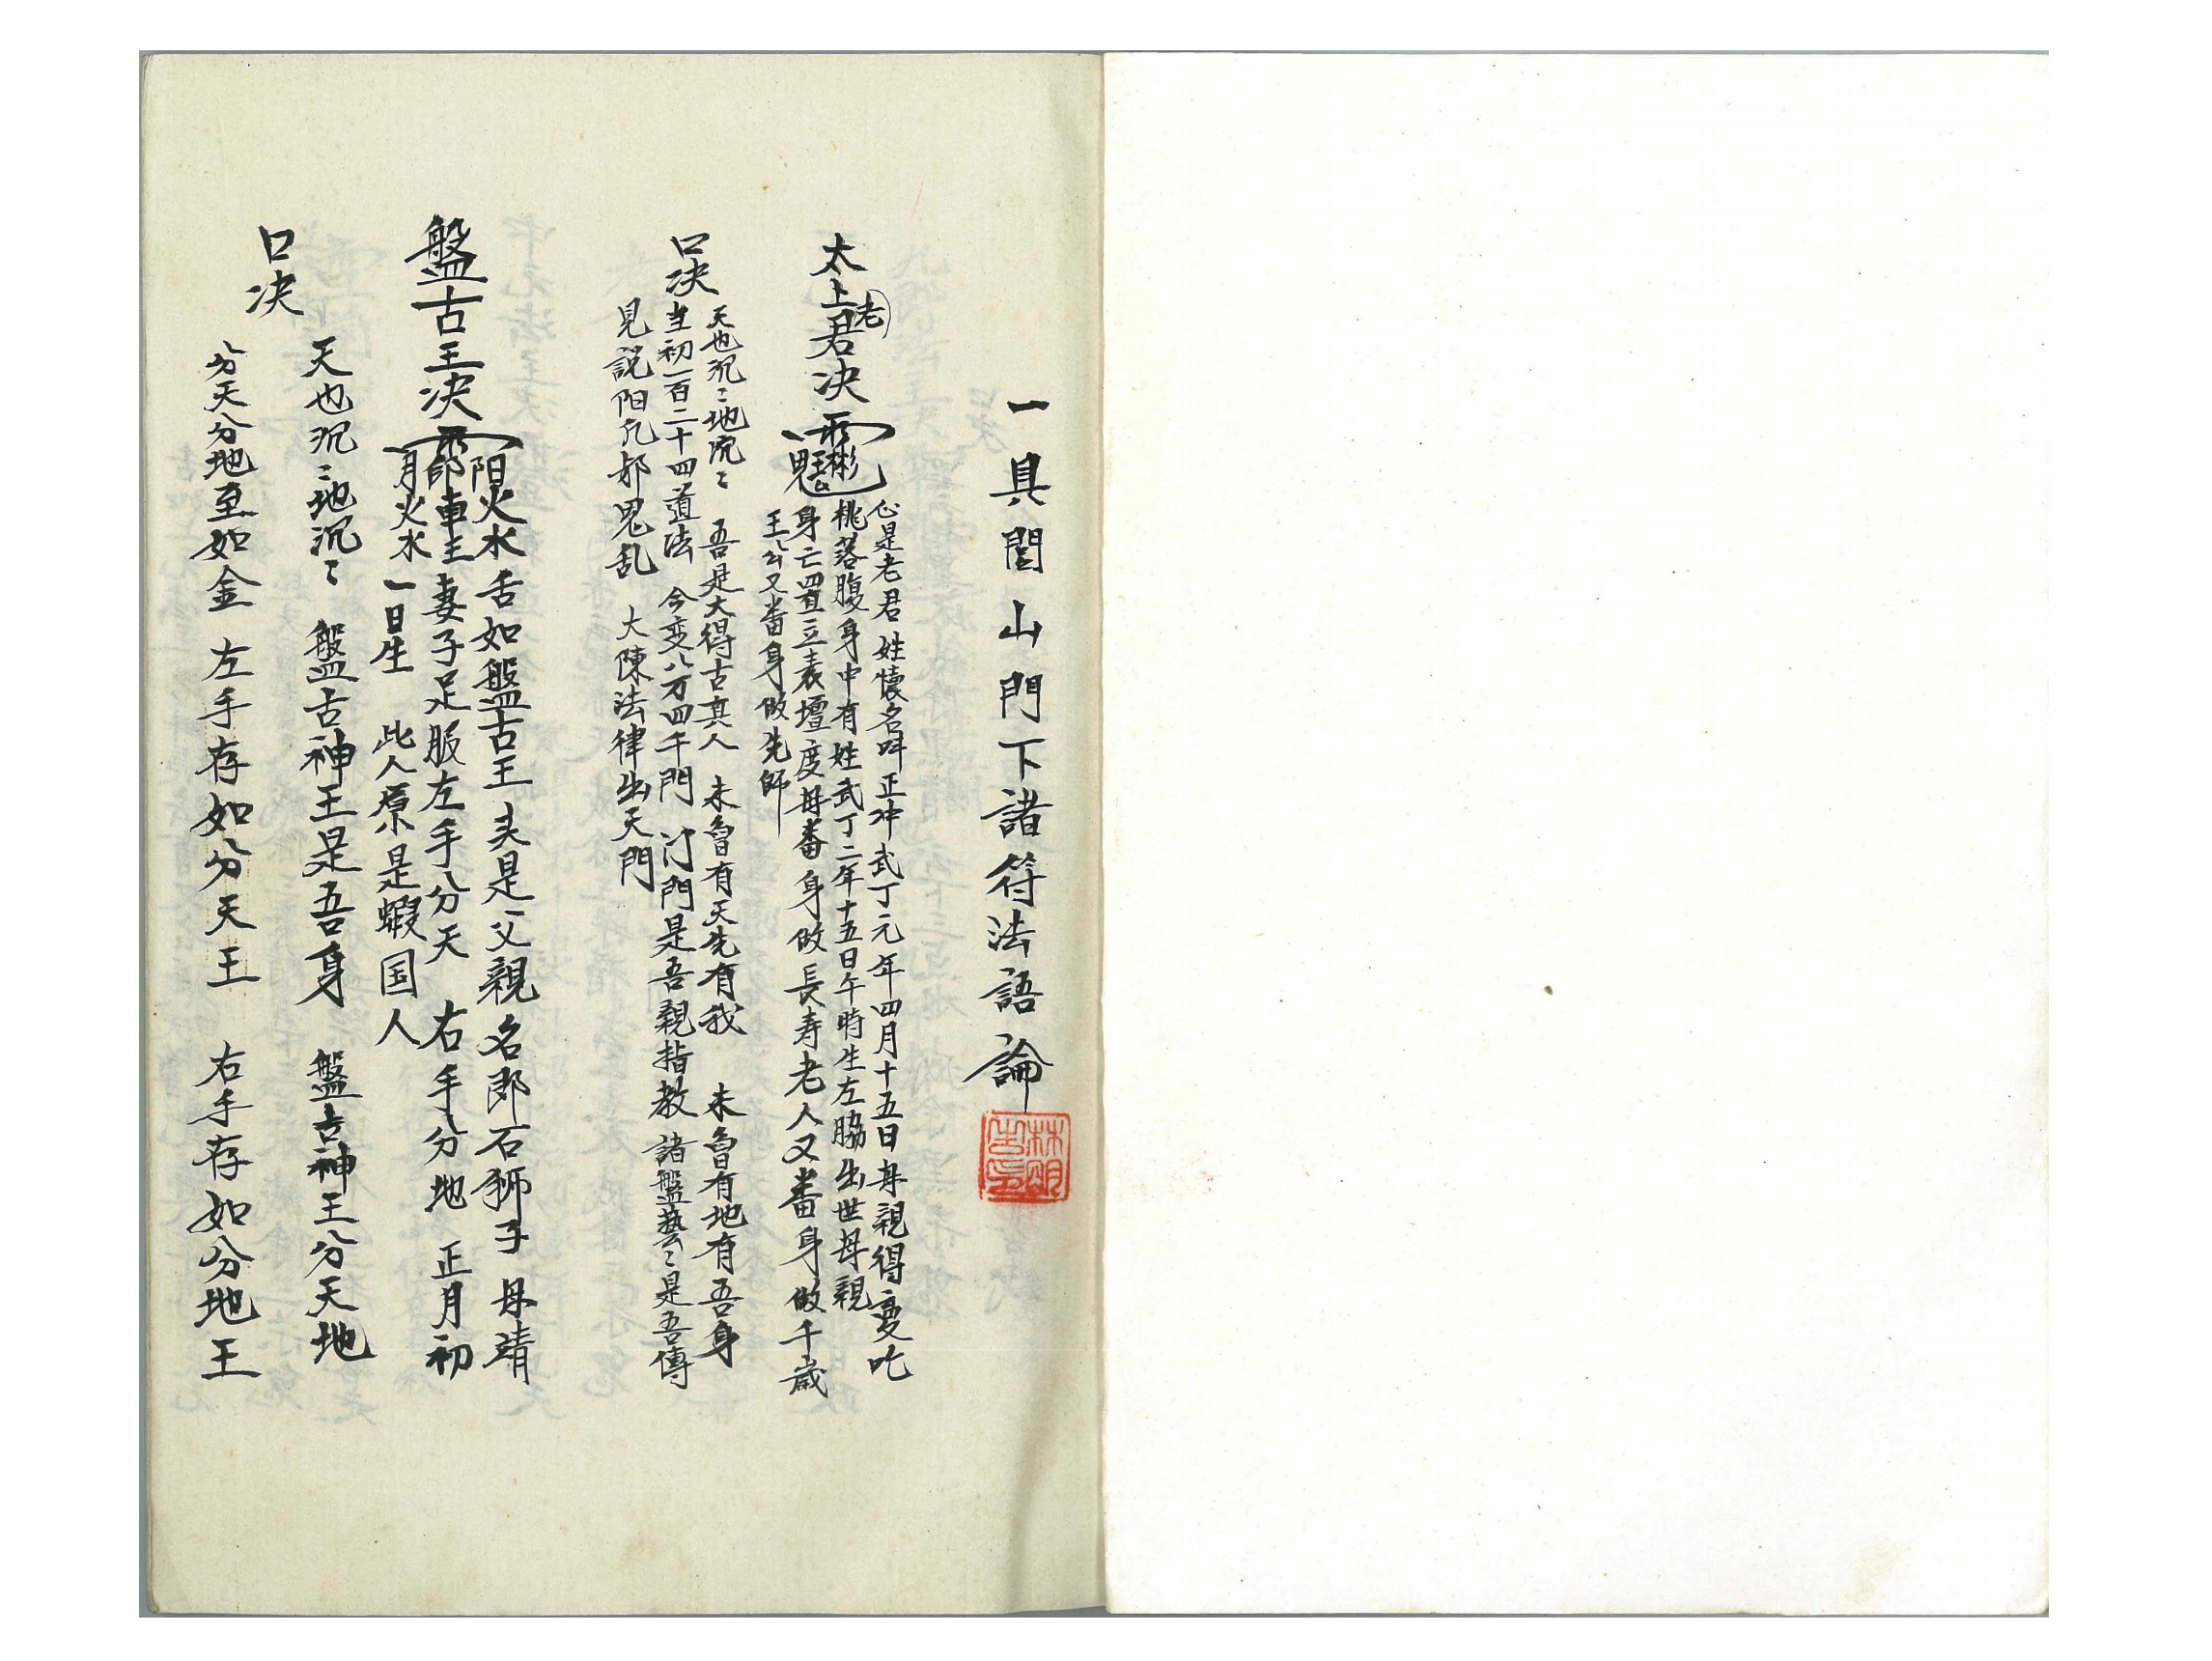 一具閭山門下諸符法語論
太上老君决
心是老君 姓懷名呌正冲 武丁元年四月十五日母親得变吃
桃落腹身中有姓武丁二年十五日午時生左脇出世母親
身亡四置立表壇度母畨身做長寿老人又畨身做千歲
王公又畨身做先師
口决
天也沉〻地沉〻 吾是大得古真人 未曾有天先有我 未曾有地有吾身
当初一百二十四道法 今变八万四千門 門是吾親指教 諸盤藝〻是吾傳
見説阳凡邪鬼乱 大陳法律出天門
盤古王决
阳火水 舌如盤古王 夫是父親名郎石獅子 母靖
車主妻子足服左手分天 右手分地 正月初
月火水 一日生 此人原是蝦国人
口决
天也沉〻地沉〻 盤古神王是吾身 盤古神王分天地
分天分地至如金 左手存如分天王 右手存如分地王